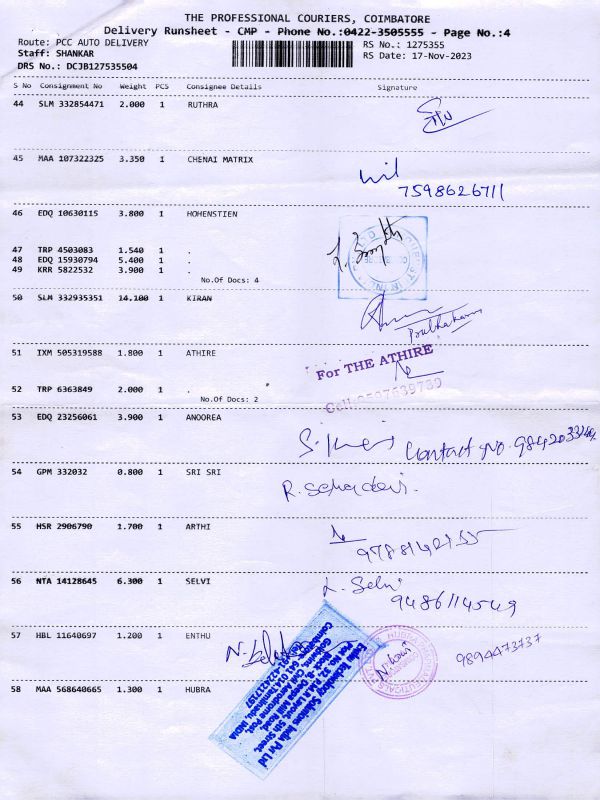 THE PROFESSIONAL COURIERS, COIMBATORE
Delivery Runsheet - CMP - Phone No.:0422-3505555 - Page No.:4
Route: PCC AUTO DELIVERY
RS No.: 1275355
Staff: SHANKAR
RS Date: 17-Nov-2023
DRS No.: DCJB127535504
S No Consignment No Weight PCS Consignee Details Signature
44 SLM 332854471 2.000 1 RUTHRA
45 MAA 107322325 3.350 1 CHENAI MATRIX
7598626711
46 EDQ 10630115 3.800 1 HOHENSTIEN
47 TRP 4503083 1.540 1 .
48 EDQ 15930794 5.400 1 .
49 KRR 5822532 3.900 1 .
No.Of Docs: 4
50 SLM 332935351 14.100 1 KIRAN
Prabhakaran
51 IXM 505319588 1.800 1 ATHIRE
For THE ATHIRE
52 TRP 6363849 2.000 1 .
No.Of Docs: 2
53 EDQ 23256061 3.900 1 ANOOREA
Contact No.
54 GPM 332032 0.800 1 SRI SRI
55 HSR 2906790 1.700 1 ARTHI
56 NTA 14128645 6.300 1 SELVI
L. Selvi
9486114549
57 HBL 11640697 1.200 1 ENTHU
9894473737
58 MAA 568640665 1.300 1 HUBRA